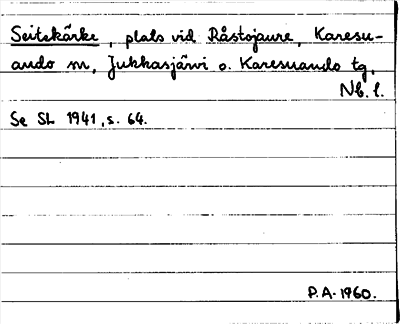 Seitekårke, plats vid Råstojaure, Karesu-
ando m, Jukkasjärvi o. Karesuando tg,
Nb. l.
Se SL 1941, s. 64.
P.A. 1960.